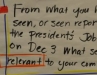 From what you h
seen, or seen repor
the presidents Job
on Dec 3 What se
relevant to your com